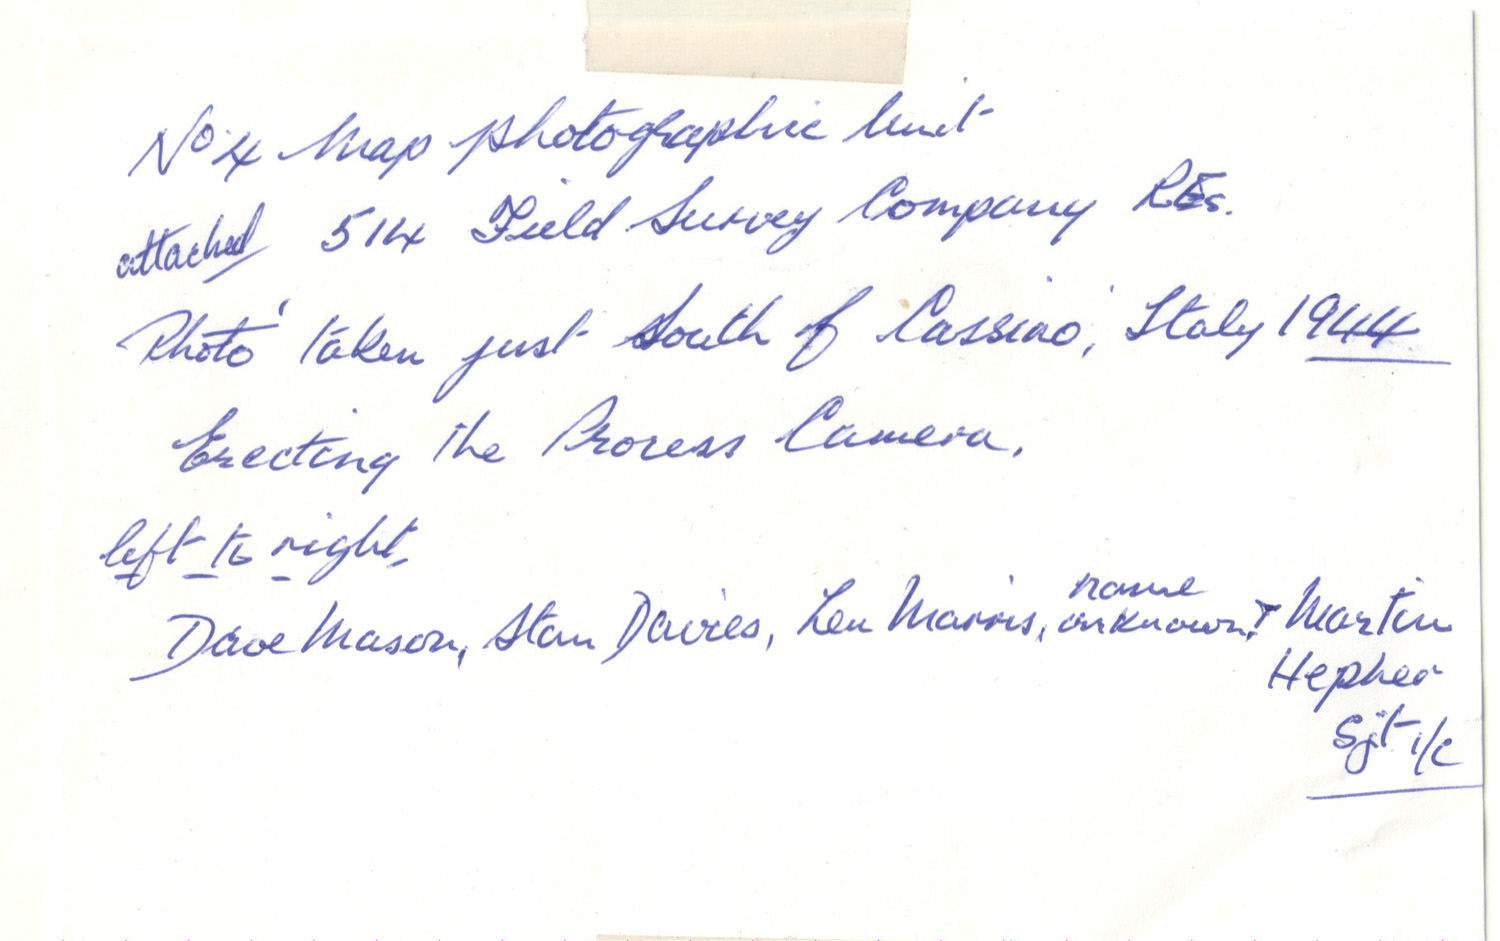 No 4 Map photographic Unit
attached 514 Field Survey Company REs.
Photo' taken just South of Cassino, Italy 1944
Erecting the Process Camera.
left to right.
Dave Mason, Stan Davies, Len Marris, name unknown, + Martin
Hepher
Sjt i/c